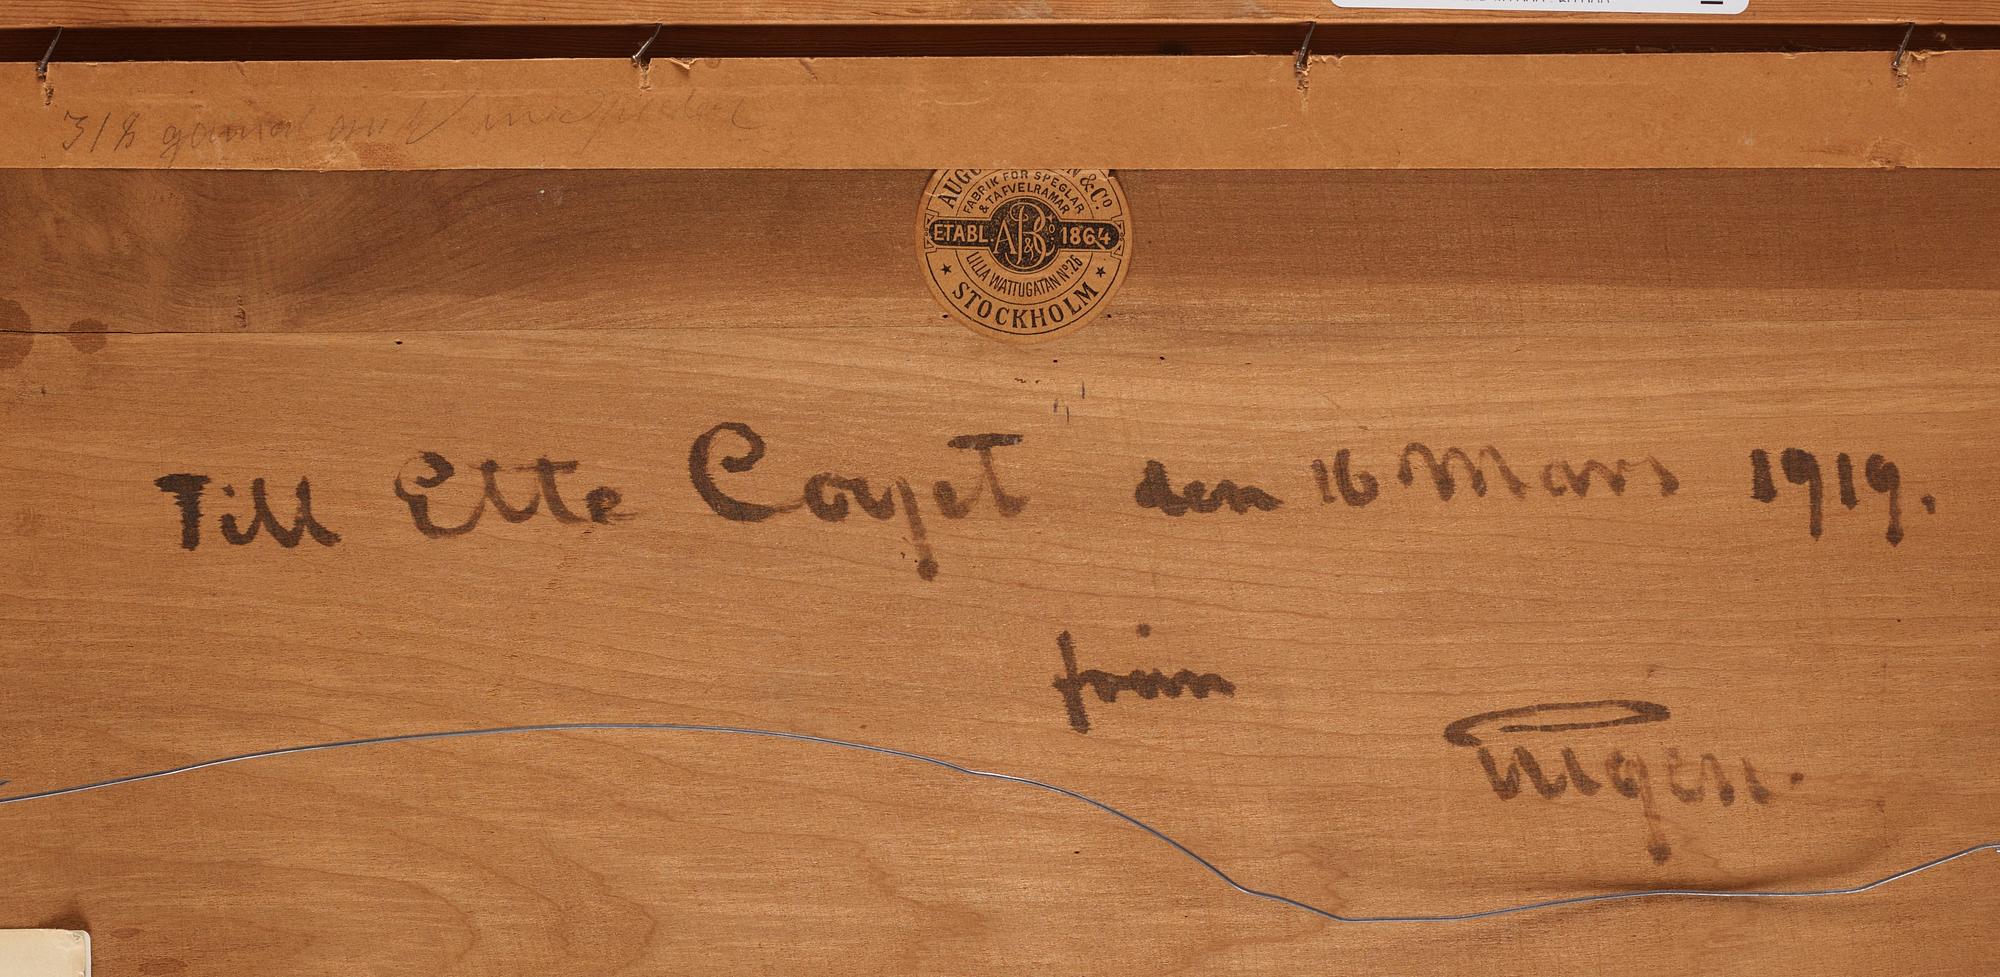 318
AUG N & Co
FABRIK FÖR SPEGLAR
& TAFVELRAMAR
ETABL. AB&Co 1864
LILLA WATTUGATAN No. 26
STOCKHOLM
Till Ette Coyet den 16 Mars 1919.
från